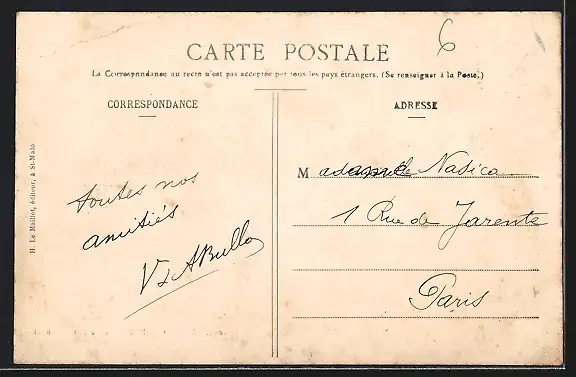 6
CARTE POSTALE
La Correspondance au recto n'est pas acceptée par tous les pays étrangers. (Se renseigner à la Poste.)
CORRESPONDANCE
ADRESSE
H. Le Maillot, éditeur, à St-Malo
toutes nos
amitiés
V & ABullo
M adame Nasica
1 Rue de Jarente
Paris